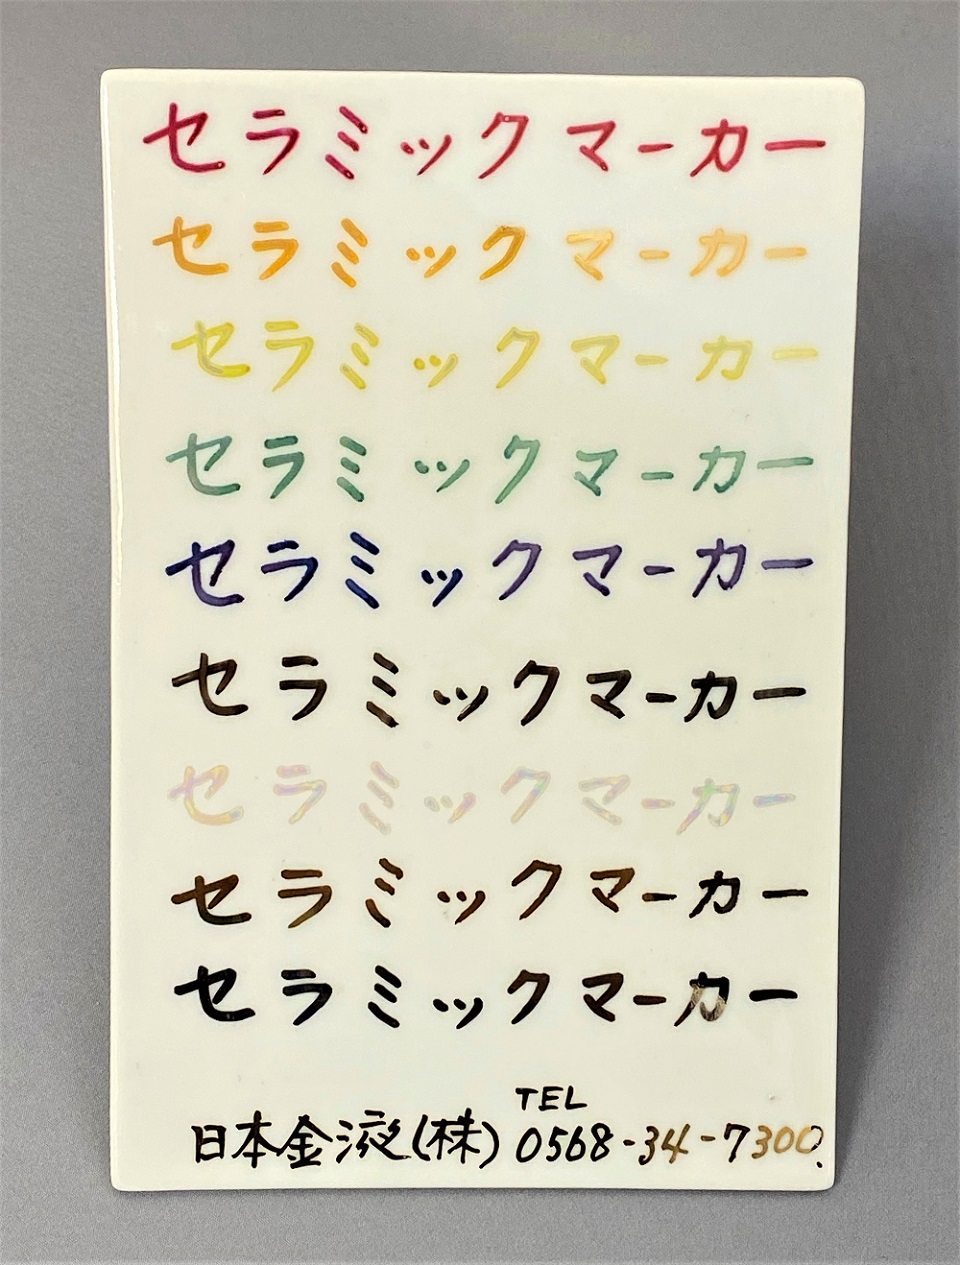 セラミックマーカー
セラミックマーカー
セラミックマーカー
セラミックマーカー
セラミックマーカー
セラミックマーカー
セラミックマーカー
セラミックマーカー
セラミックマーカー
TEL
日本金液(株) 0568-34-7300.